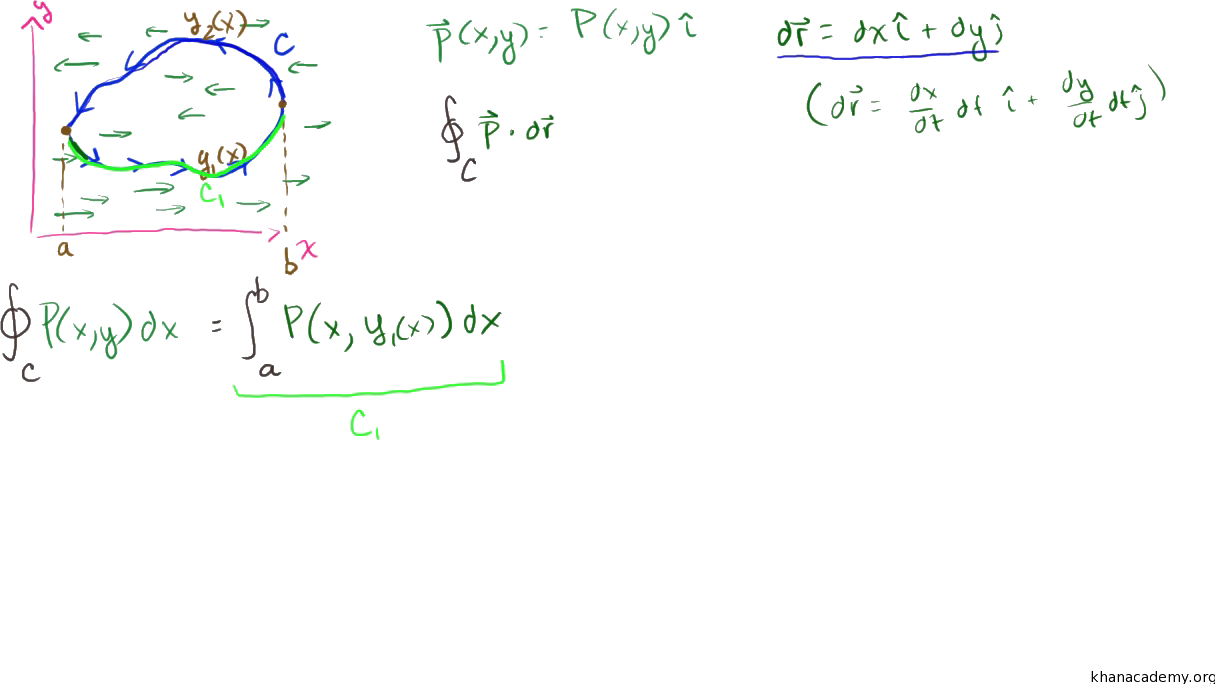 y
y₂(x)
C
y₁(x)
C₁
a
b
x
P⃗(x,y) = P(x,y) î
∮_C P⃗ · dr⃗
dr⃗ = dx î + dy ĵ
(dr⃗ = dx/dt dt î + dy/dt dt ĵ)
∮_C P(x,y) dx = ∫_a^b P(x, y₁(x)) dx
C₁
khanacademy.org